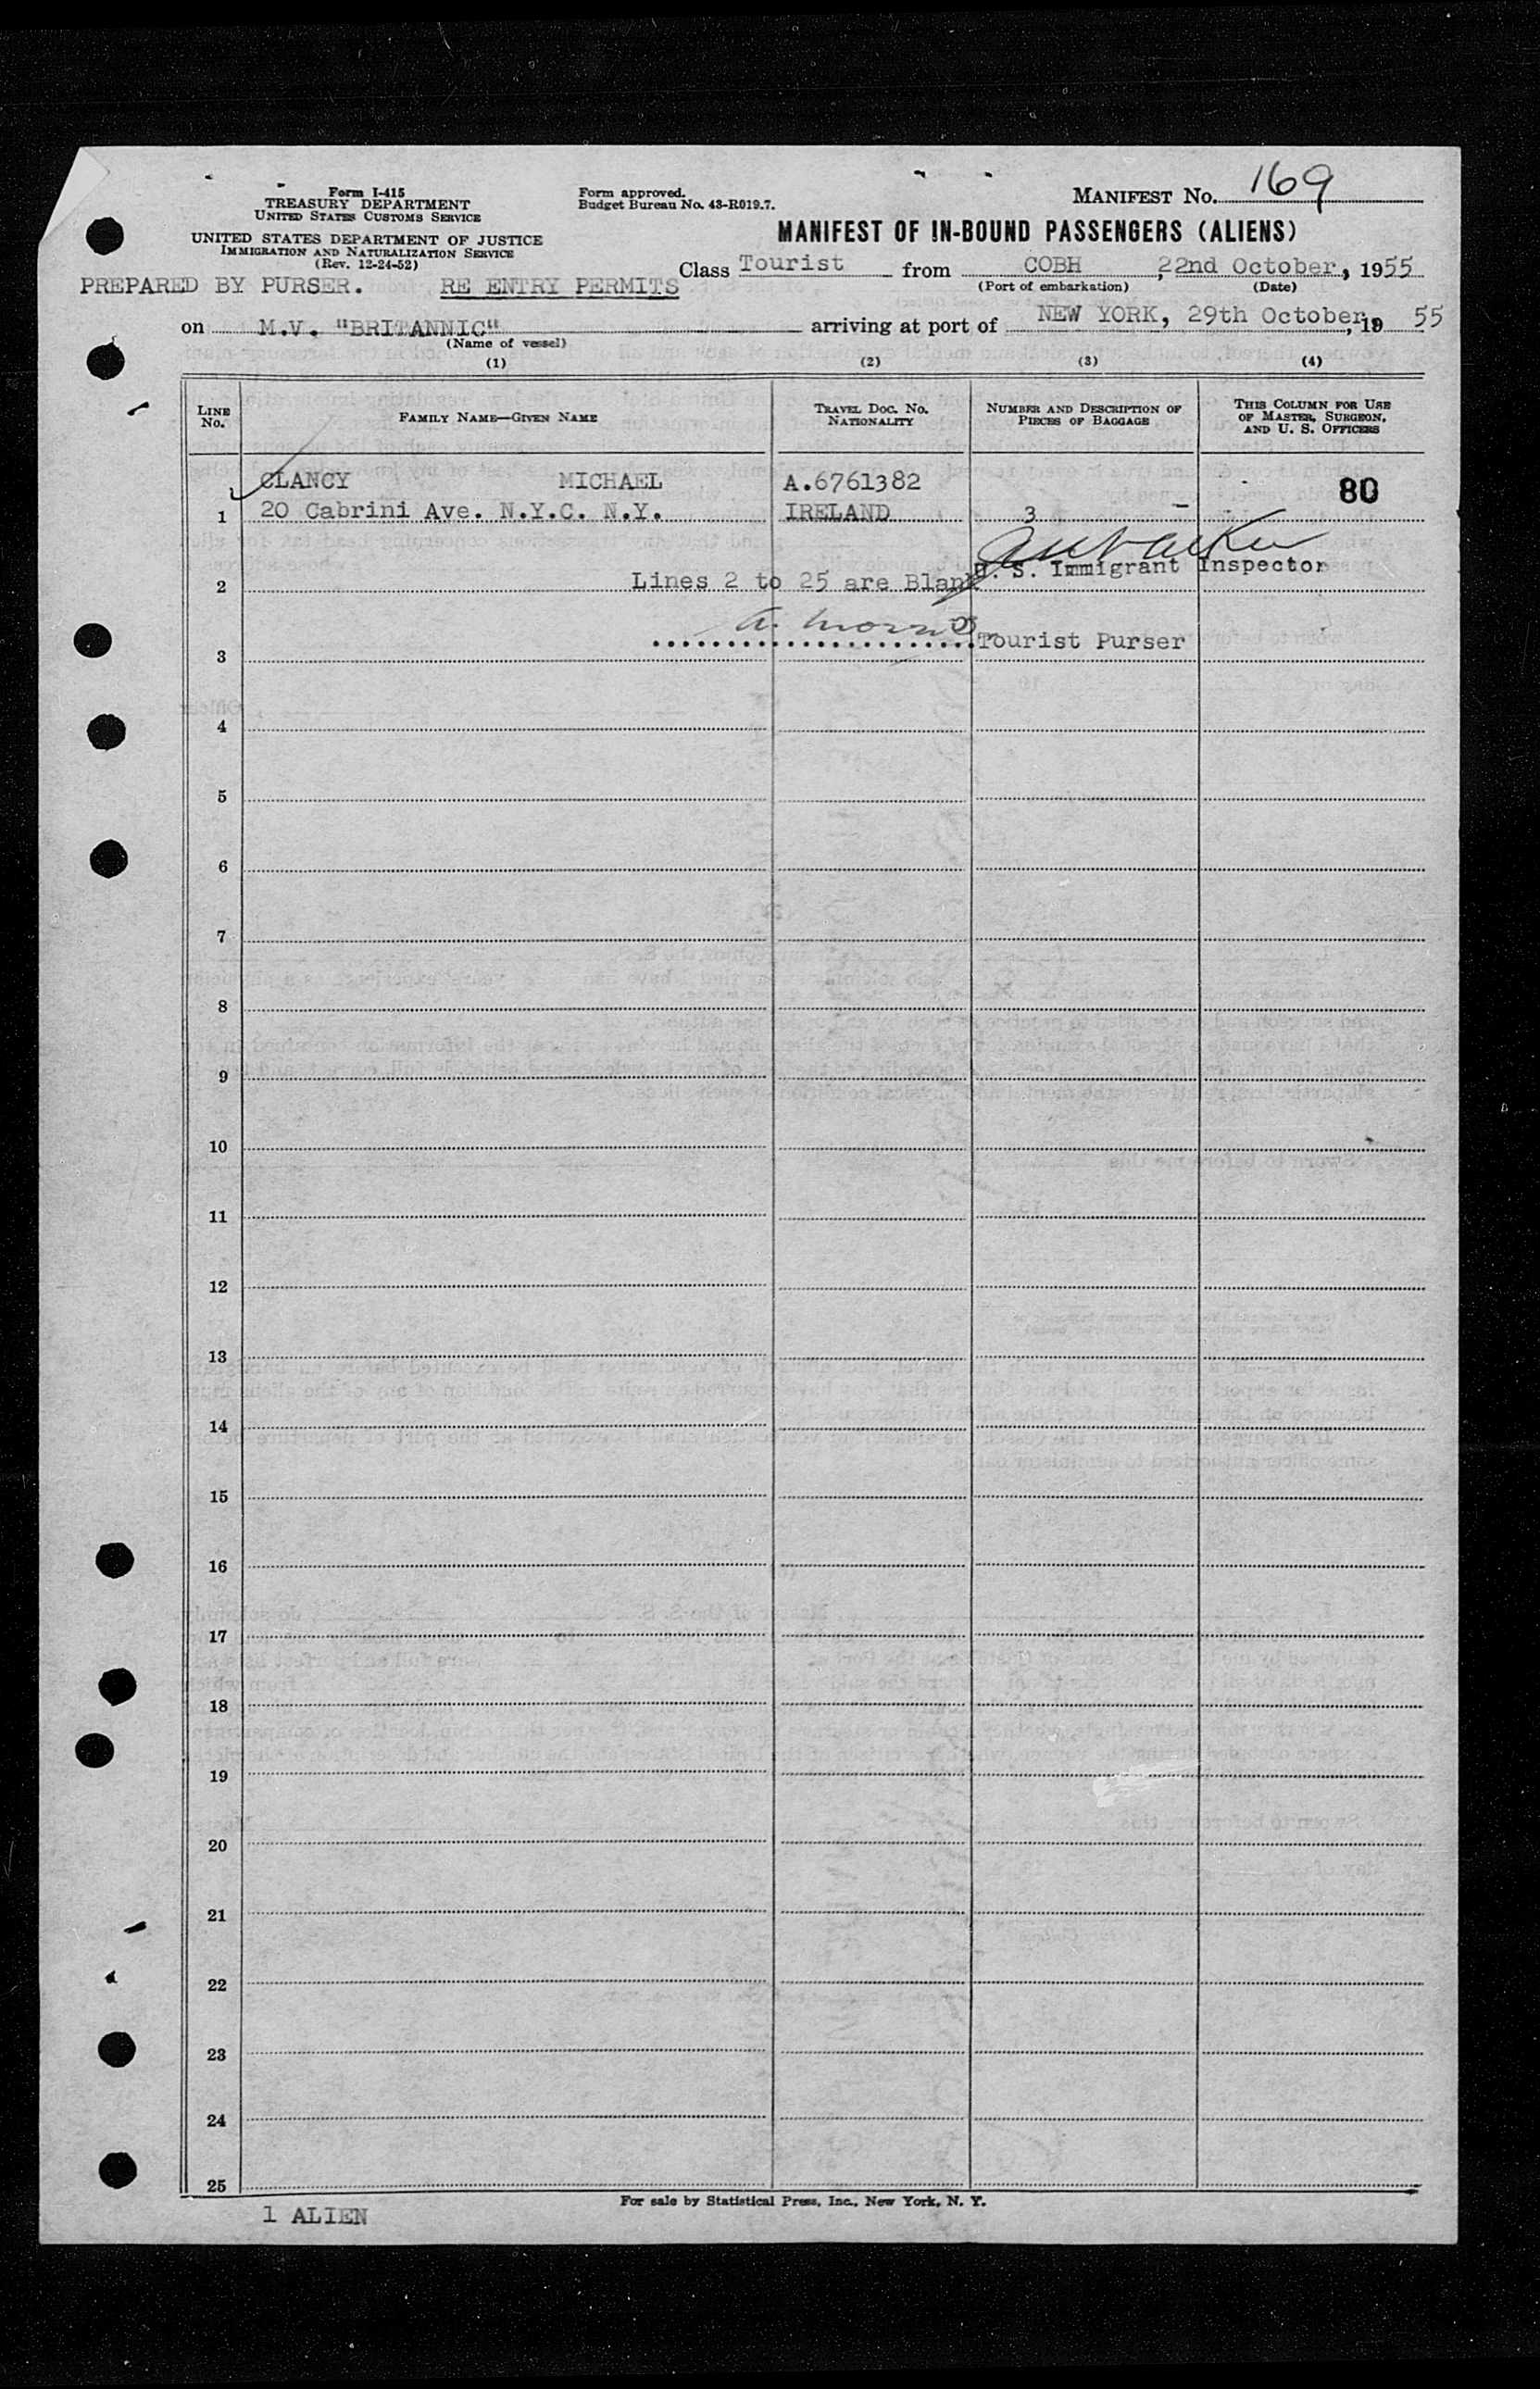 Form I-415
TREASURY DEPARTMENT
UNITED STATES CUSTOMS SERVICE
UNITED STATES DEPARTMENT OF JUSTICE
IMMIGRATION AND NATURALIZATION SERVICE
(Rev. 12-24-52)
Form approved.
Budget Bureau No. 43-R019.7.
MANIFEST NO. 169
MANIFEST OF IN-BOUND PASSENGERS (ALIENS)
PREPARED BY PURSER. RE ENTRY PERMITS
Class Tourist from COBH, 22nd October, 1955
(Port of embarkation) (Date)
on M.V. "BRITANNIC" arriving at port of NEW YORK, 29th October, 19 55
(Name of vessel)
(1) (2) (3) (4)
LINE NO.
FAMILY NAME—GIVEN NAME
TRAVEL DOC. NO.
NATIONALITY
NUMBER AND DESCRIPTION OF
PIECES OF BAGGAGE
THIS COLUMN FOR USE
OF MASTER, SURGEON,
AND U. S. OFFICERS
CLANCY MICHAEL A.6761382 80
1 20 Cabrini Ave. N.Y.C. N.Y. IRELAND 3 -
U. S. Immigrant Inspector
2 Lines 2 to 25 are Blank
A. Morris
3 Tourist Purser
4
5
6
7
8
9
10
11
12
13
14
15
16
17
18
19
20
21
22
23
24
25
For sale by Statistical Press, Inc., New York, N. Y.
1 ALIEN